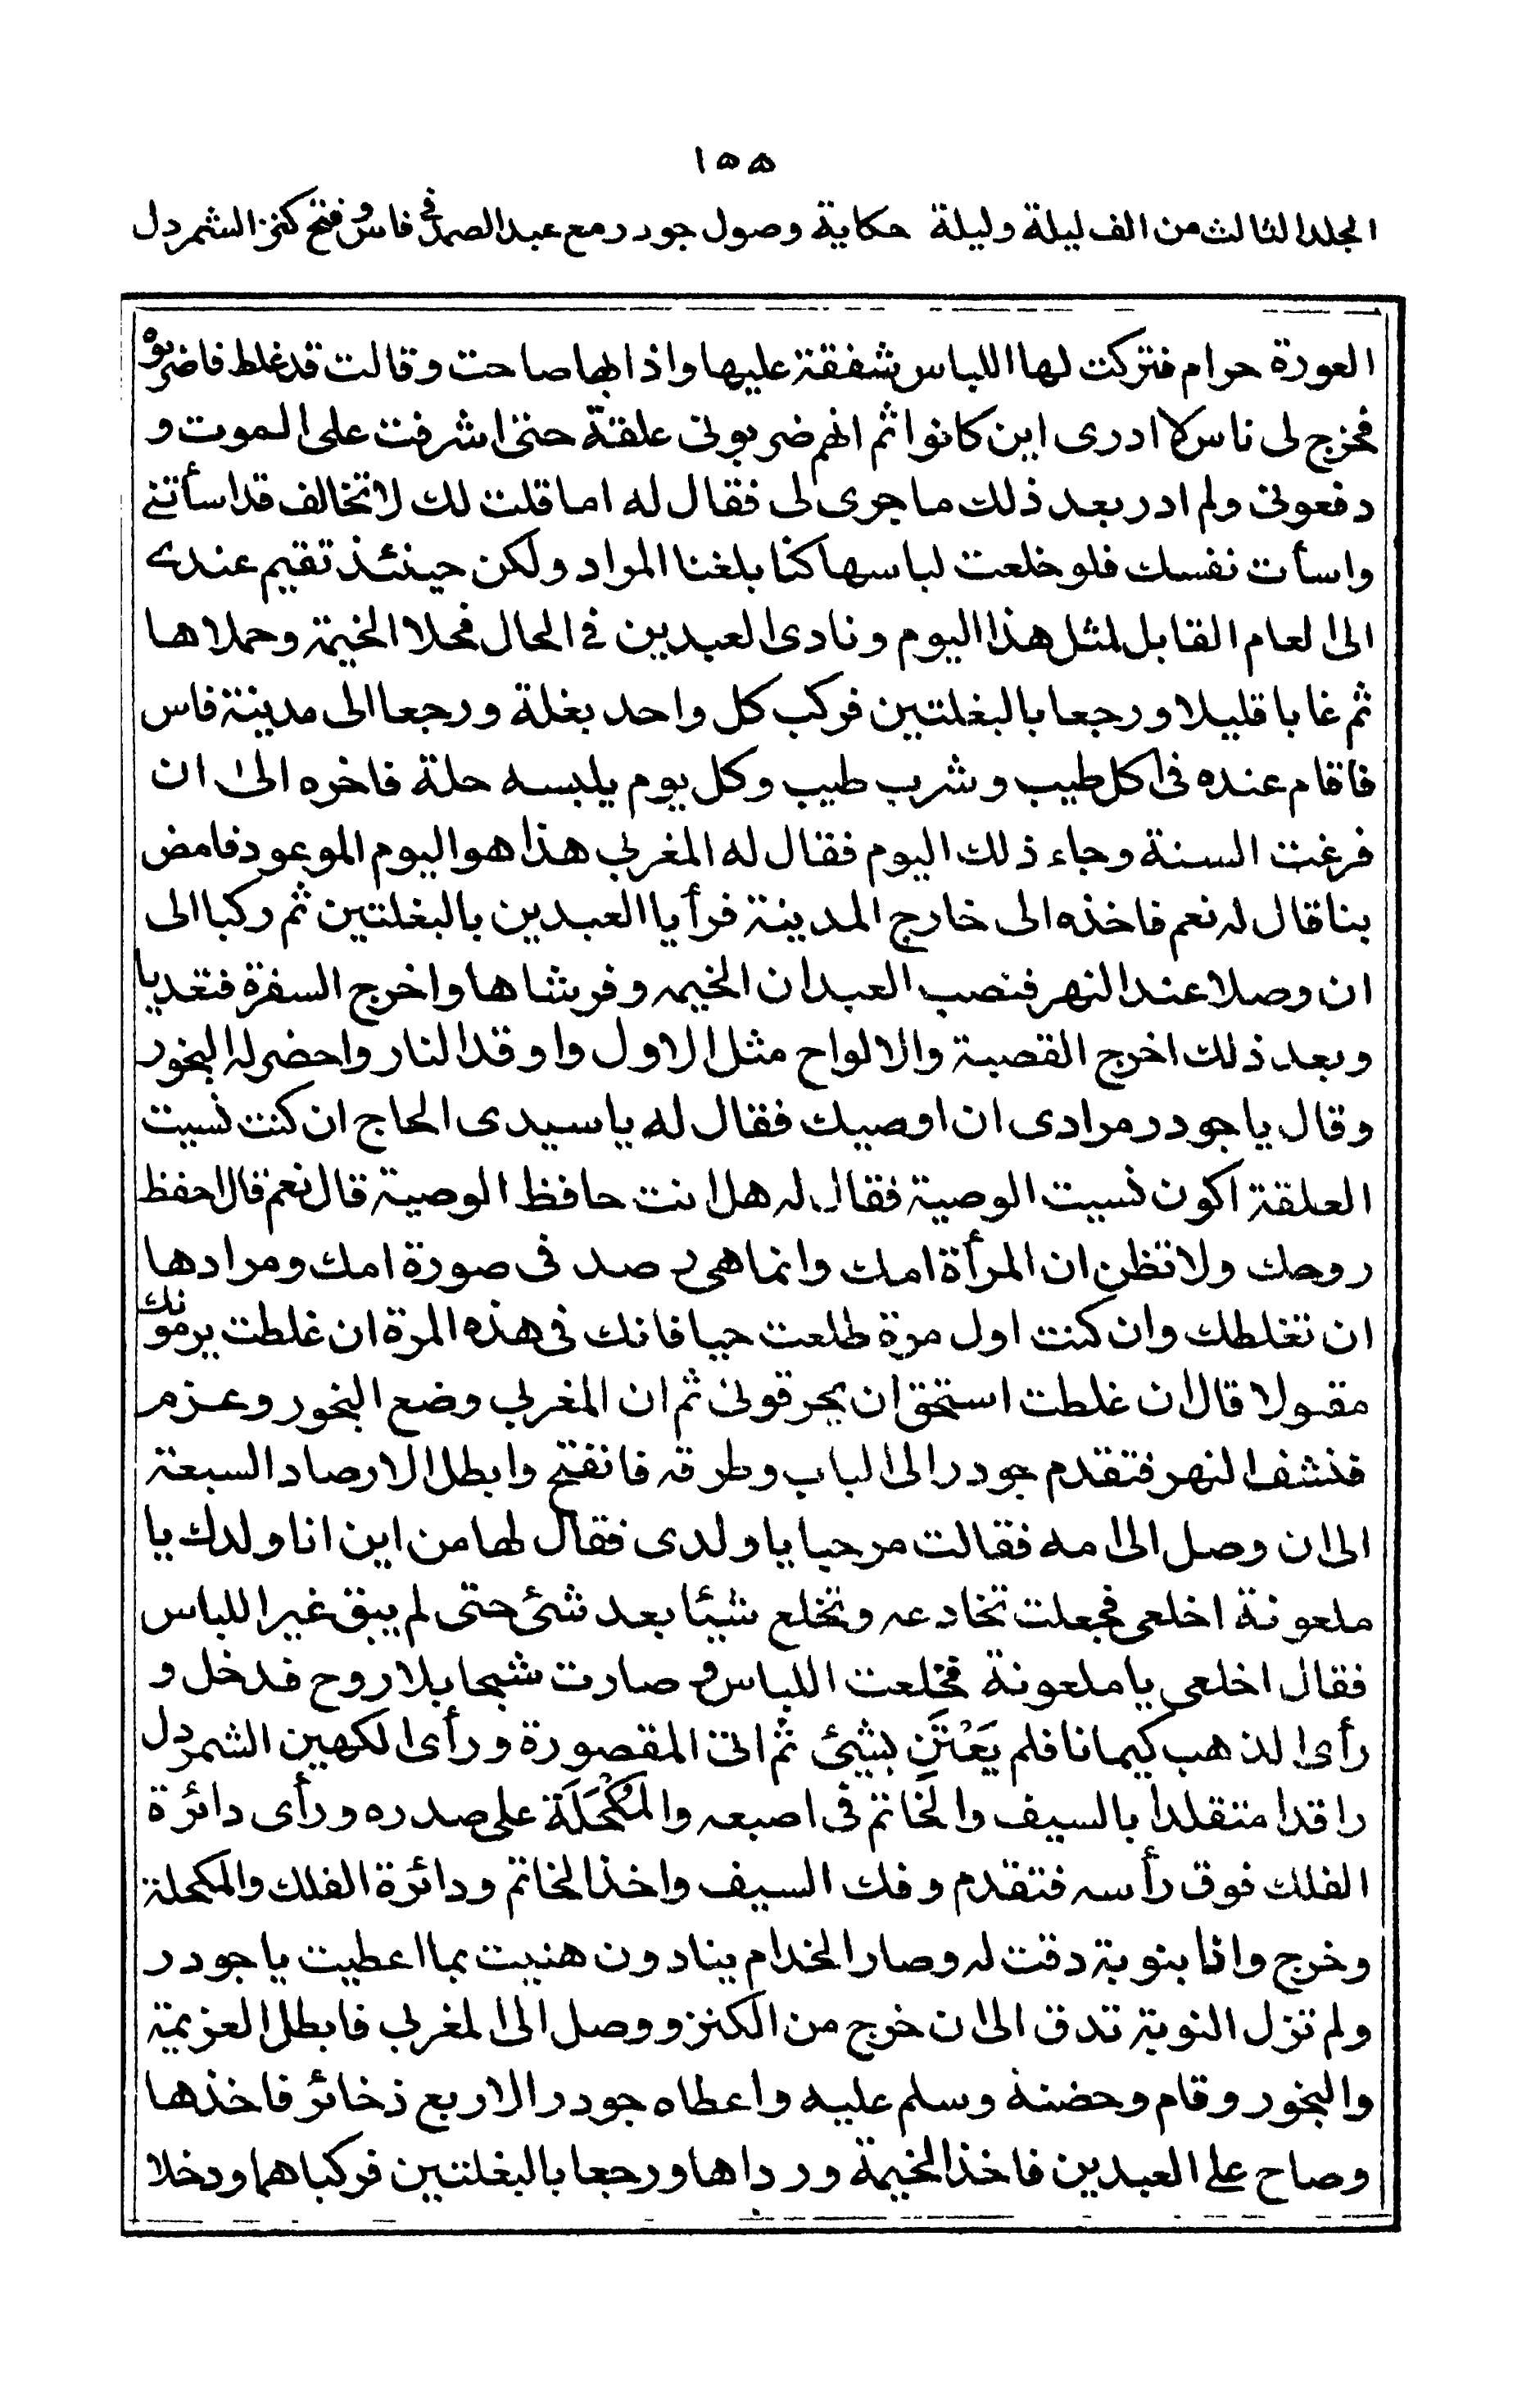 ١٥٥
المجلد الثالث من الف ليلة وليلة حكاية وصول جودر مع عبد الصمد فى فاس وفتح كنز الشمردل
العورة حرام فتركت لها اللباس شفقة عليها واذا بها صاحت وقالت قد غلط فاضربوه
فخرج لى ناس لا ادرى اين كانوا ثم انهم ضربونى علقة حتى اشرفت على الموت و
دفعونى ولم ادر بعد ذلك ما جرى لى فقال له اما قلت لك لا تخالف قد اسأتنى
واسأت نفسك فلو خلعت لباسها كنا بلغنا المراد ولكن حينئذ تقيم عندى
الى العام القابل لمثل هذا اليوم ونادى العبدين فى الحال فحلا الخيمة وحملاها
ثم غابا قليلا ورجعا بالبغلتين فركب كل واحد بغلة ورجعا الى مدينة فاس
فاقام عنده فى اكل طيب وشرب طيب وكل يوم يلبسه حلة فاخره الى ان
فرغت السنة وجاء ذلك اليوم فقال له المغربى هذا هو اليوم الموعود فامض
بنا قال له نعم فاخذه الى خارج المدينة فرأيا العبدين بالبغلتين ثم ركبا الى
ان وصلا عند النهر فنصب العبدان الخيمه وفرشاها واخرج السفرة فتغديا
وبعد ذلك اخرج القصبة والالواح مثل الاول واوقد النار واحضر له البخور
وقال يا جودر مرادى ان اوصيك فقال له يا سيدى الحاج ان كنت نسيت
العلقة اكون نسيت الوصية فقال له هل انت حافظ الوصية قال نعم قال احفظ
روحك ولا تظن ان المرأة امك وانما هى رصد فى صورة امك ومرادها
ان تغلطك وان كنت اول مرة طلعت حيا فانك فى هذه المرة ان غلطت يرمونك
مقتولا قال ان غلطت استحق ان يحرقونى ثم ان المغربى وضع البخور وعزم
فنشف النهر فتقدم جودر الى الباب وطرقه فانفتح وابطل الارصاد السبعة
الى ان وصل الى امه فقالت مرحبا يا ولدى فقال لها من اين انا ولدك يا
ملعونة اخلعى فجعلت تخادعه وتخلع شيئا بعد شئ حتى لم يبق غير اللباس
فقال اخلعى يا ملعونة فخلعت اللباس و صارت شبحا بلا روح فدخل و
رأى الذهب كيمانا فلم يَعْتَنِ بشئ ثم اتى المقصورة ورأى الكهين الشمردل
راقدا متقلدا بالسيف والخاتم فى اصبعه والمُكْحَلَة على صدره ورأى دائرة
الفلك فوق رأسه فتقدم وفك السيف واخذ الخاتم ودائرة الفلك والمكحلة
وخرج واذا بنوبة دقت له وصار الخدام ينادون هنيت بما اعطيت يا جودر
ولم تزل النوبة تدق الى ان خرج من الكنز ووصل الى المغربى فابطل العزيمة
والبخور وقام وحضنه وسلم عليه واعطاه جودر الاربع ذخائر فاخذها
وصاح على العبدين فاخذ الخيمة ورداها ورجعا بالبغلتين فركباهما ودخلا